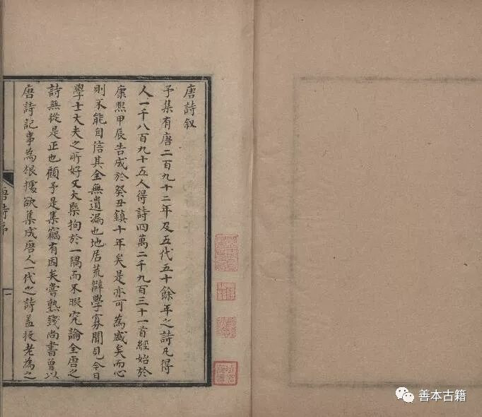 唐詩叙
予集有唐二百九十二年及五代五十餘年之詩凡得
人一千八百九十五人得詩四萬二千九百三十一首經始於
康熙甲辰告成於癸丑鎮十年矣是亦可為盛矣而心
則不能自信其全無遺漏也地居荒僻學寡聞見今日
學士大夫之所好又大槩拘於一隅而不暇究論全唐之
詩無從是正也顧予是集竊有因矣嘗熟錢尚書曾以
唐詩記事為根據欲集成唐人一代之詩蓋投老為之
唐詩序
一
善本古籍